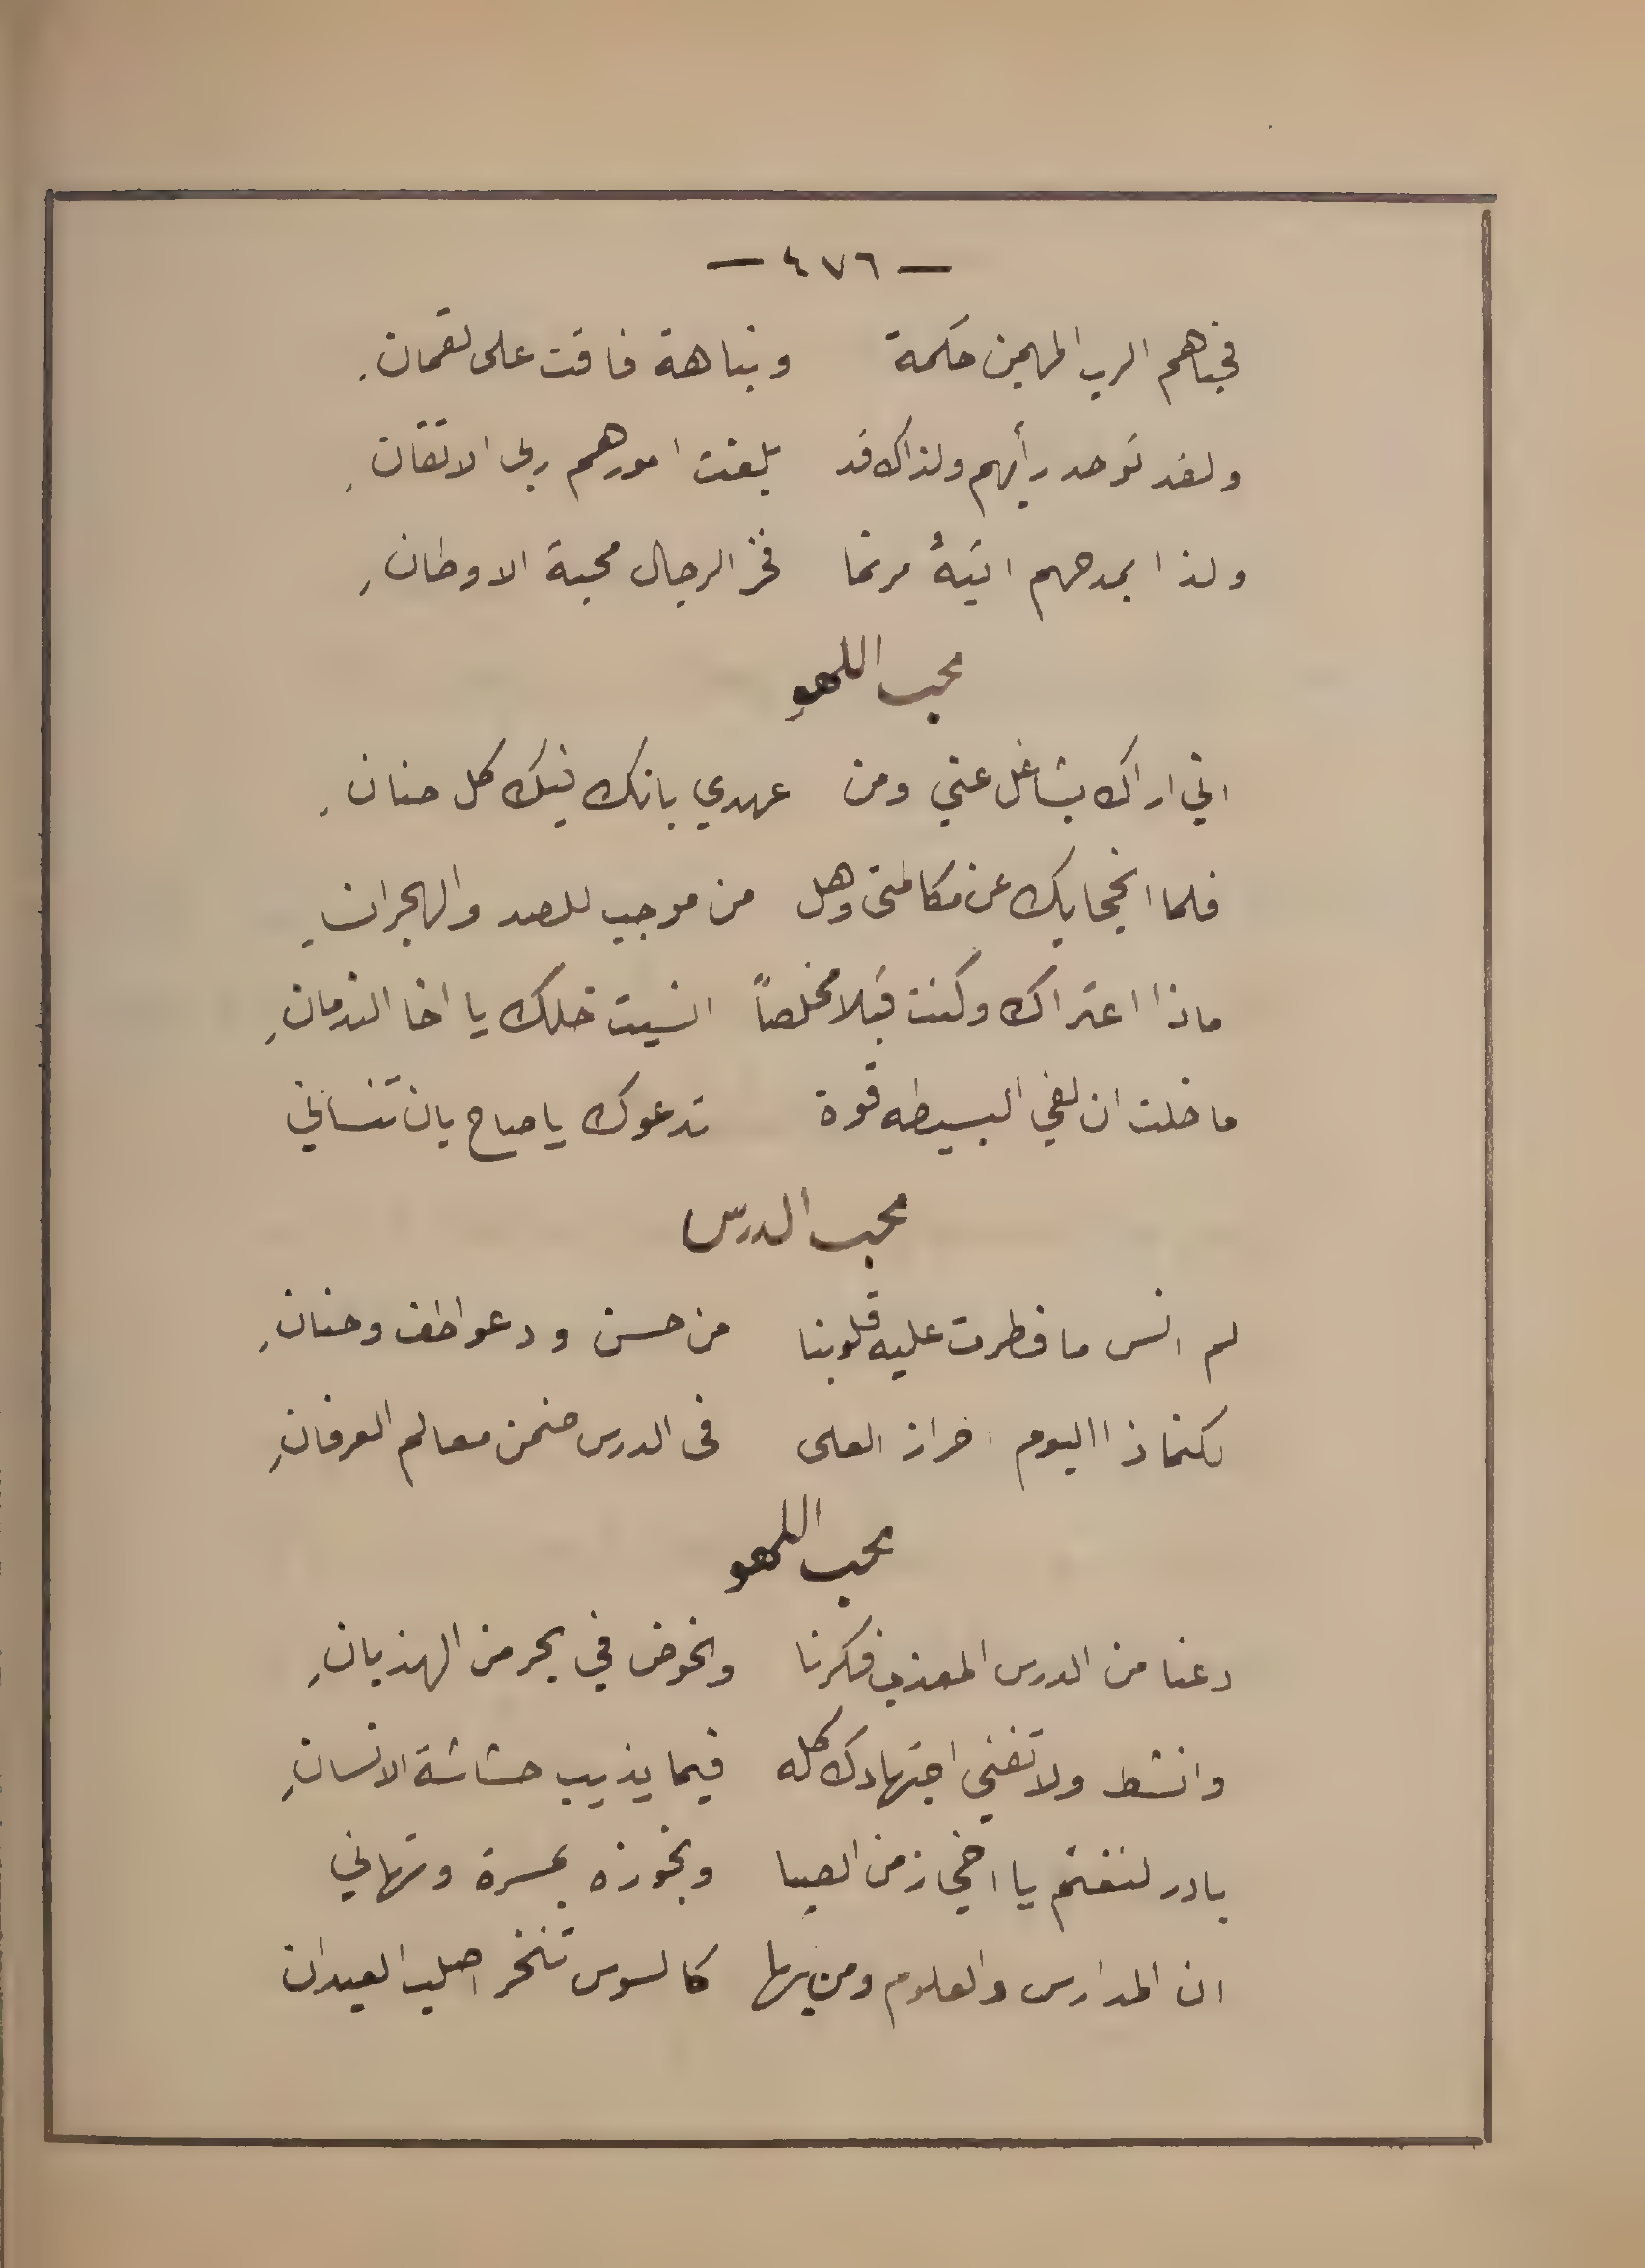 — ٤٧٦ —
فحباهم الرب المهيمن حكمة    ونباهة فاقت على لقمانِ
ولقد توحد رأيهم ولذاك قد    بلغت امورهم ربى الاتقانِ
ولذا بمدحهم اتيهُ مرنما    فخر الرجال محبة الاوطانِ
محب اللهوِ
اني اراك بشاغل عني ومن    عهدي بانك فيك كل حنانِ
فلما انحجابك عن مكالمتي وهل    من موجب للصد والهجرانِ
ماذا اعتراك وكنت قبلا مخلصاً    انسيت خلك يا اخا الندمانِ
ما خلت ان لفي البسيطه قوة    تدعوك يا صاح بان تنساني
محب الدرس
لم انس ما فطرت عليه قلوبنا    من حسن ود عواطف وحنانِ
لكنما ذا اليوم احراز العلى    في الدرس ضمن معالم العرفانِ
محب اللهو
دعنا من الدرس المعذب فكرنا    ونخوض في بحر من الهذيانِ
وانشط ولا تفني اجتهادك كله    فيما يذيب حشاشة الانسانِ
بادر لنغتم يا اخي زمن الصبا    ونجوزه بمسرة وتهاني
ان المدارس والعلوم ومن بها    كالسوس تنخر اصلب العيدان